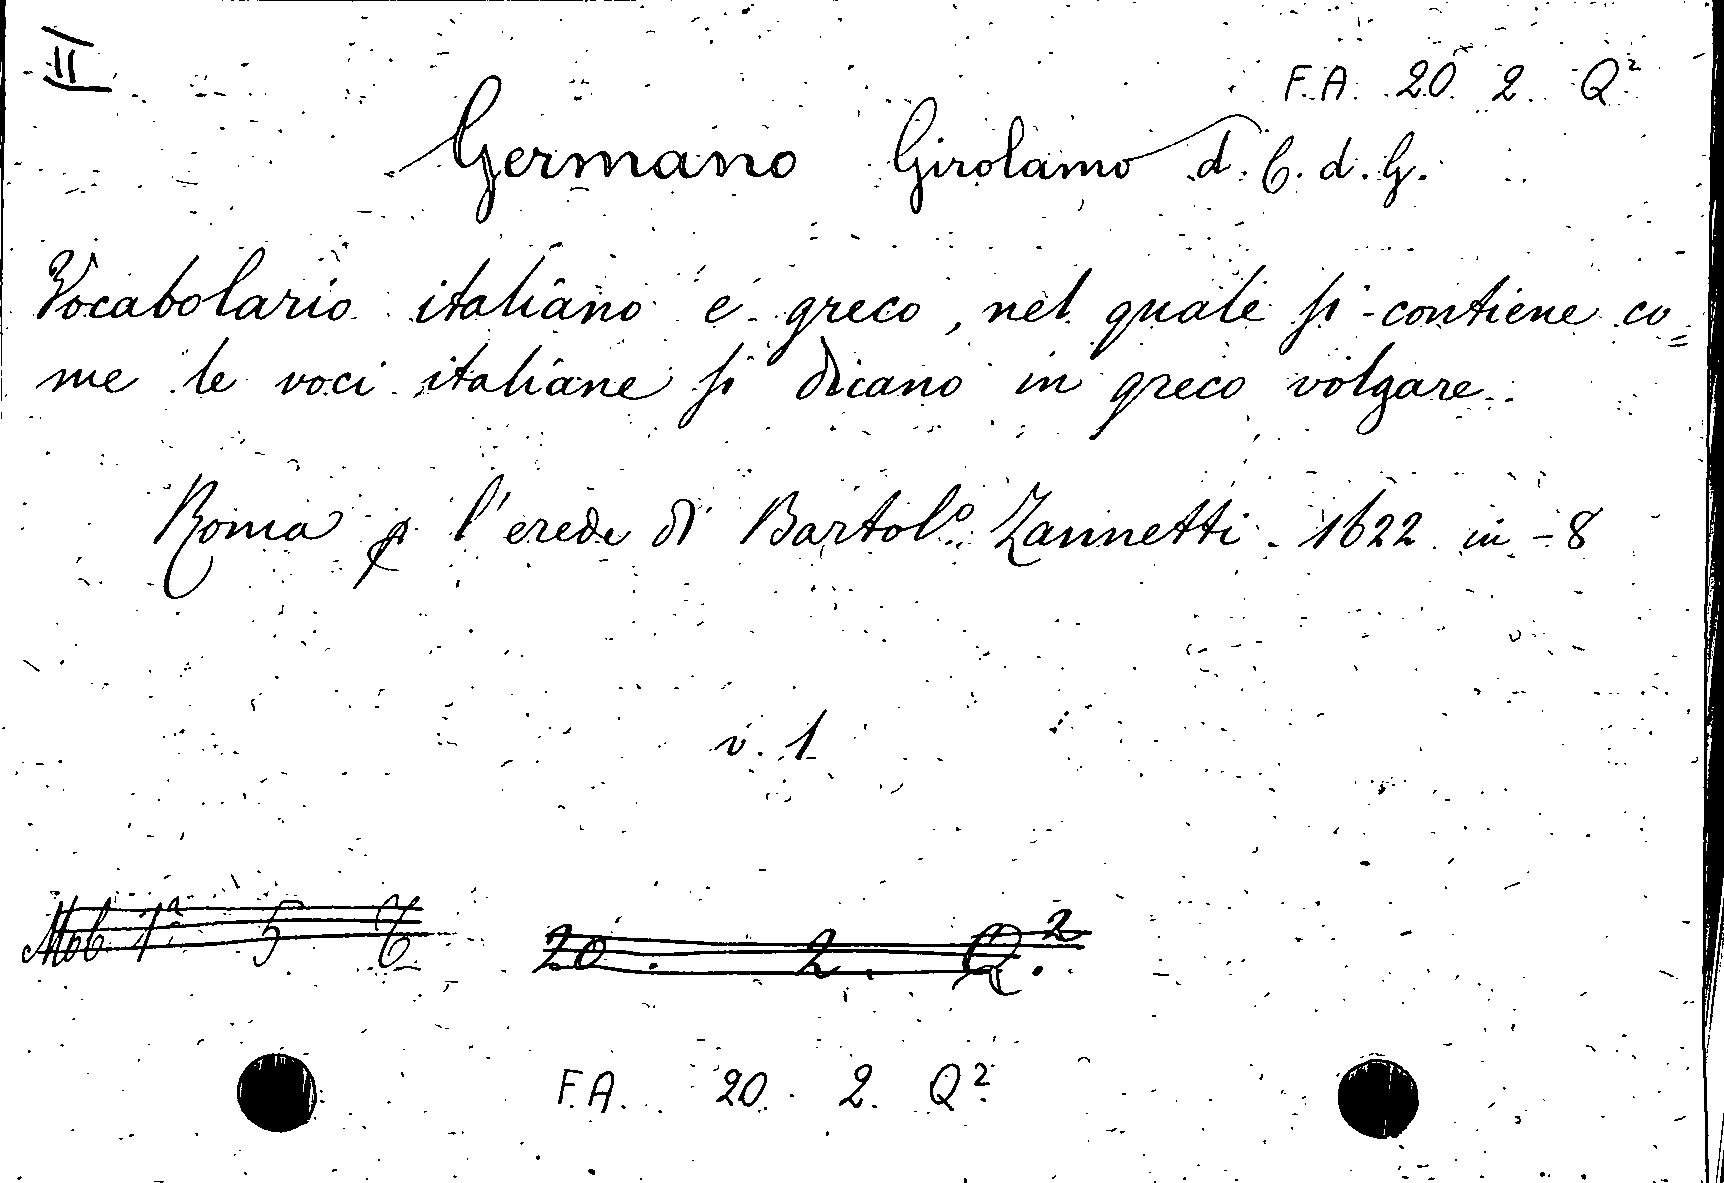 II
F.A. 20 2 Q²
Germano Girolamo d. C. d. G.
Vocabolario italiano e greco, nel quale si contiene co=
me le voci italiane si dicano in greco volgare.
Roma p l'erede di Bartol.º Zannetti. 1622 in-8
v. 1
Mob 1ª 5 C 20. 2. Q.²
F.A. 20. 2. Q²